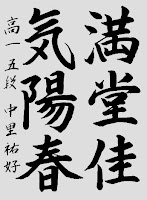 満堂佳
気陽春
高一五段 中里祐好